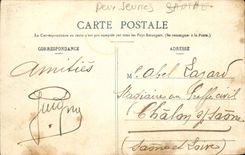 Deux Sèvres
CARTE POSTALE
La Correspondance au recto n'est pas acceptée par tous les Pays Étrangers. (Se renseigner à la Poste.)
CORRESPONDANCE
ADRESSE
Amitiés
Abel Lazard
Stagiaire au Greffe civil
Châlon s/Saône
Saône et Loire